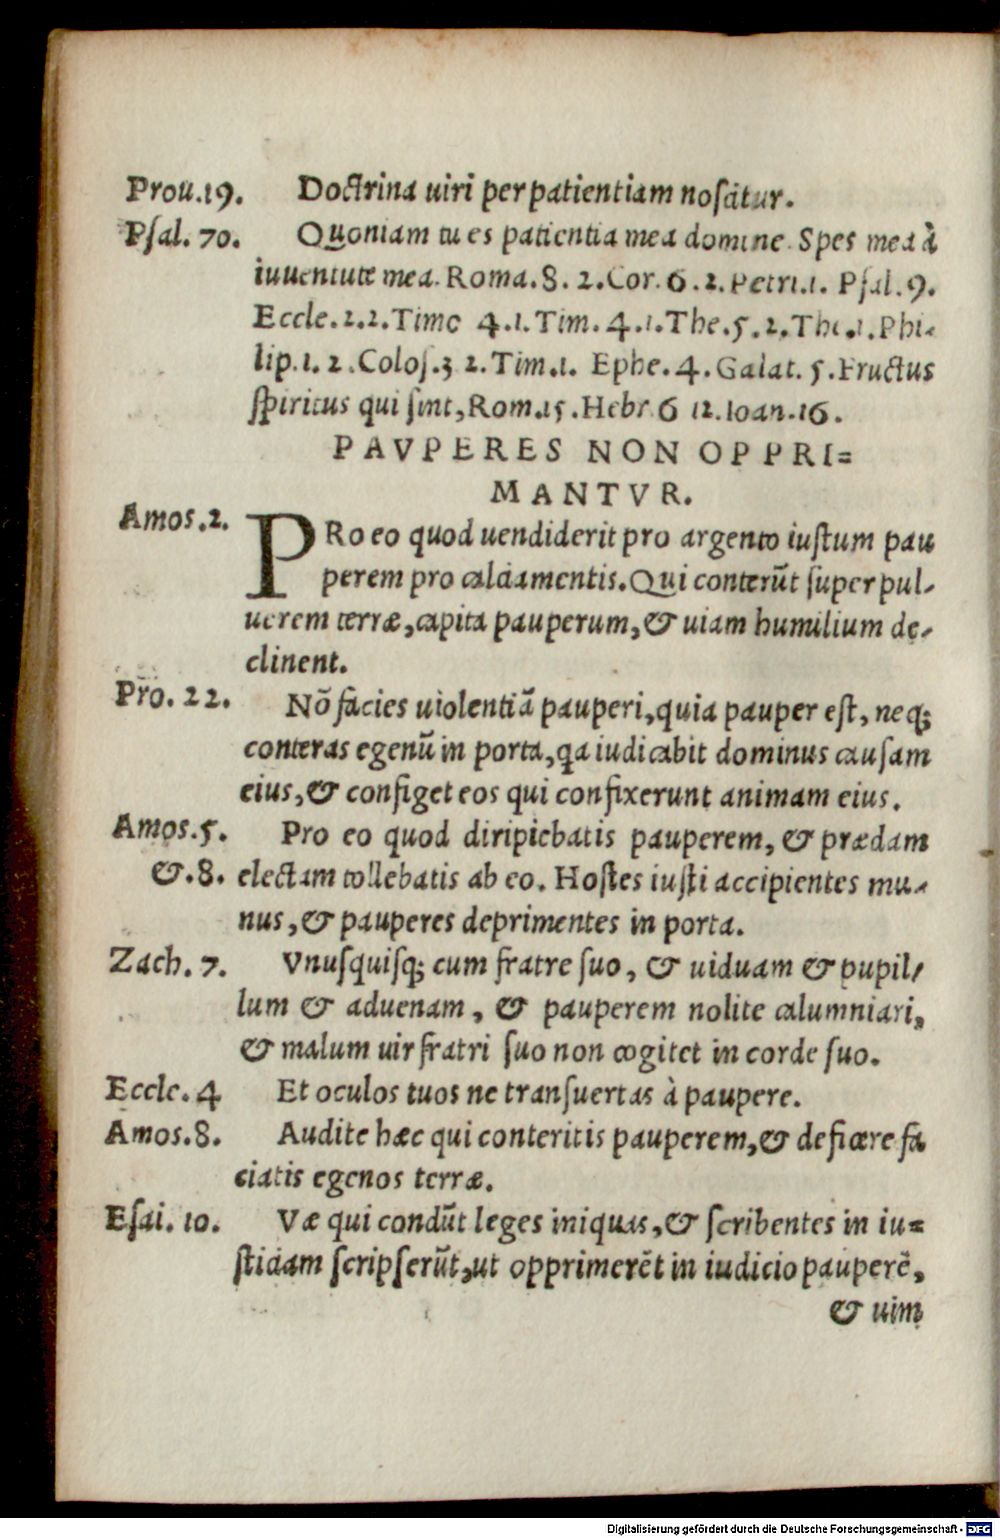 Prou.19. Doctrina uiri per patientiam noscitur.
Psal. 70. Quoniam tu es patientia mea domine. Spes mea à
iuuentute mea. Roma.8. 2.Cor. 6.2.Petri.1. Psal.9.
Eccle.2.2.Timo 4.1.Tim.4.1.The.5.2.The.1.Phi-
lip.1. 2.Colos.3 2.Tim.1. Ephe.4.Galat. 5.Fructus
spiritus qui sint, Rom.15.Hebr 6 12.Ioan.16.
PAVPERES NON OPPRI=
MANTVR.
Amos.2. PRo eo quod uendiderit pro argento iustum pau
perem pro calciamentis. Qui conterūt super pul-
uerem terræ, capita pauperum, & uiam humilium de-
clinent.
Pro. 22. Nō facies uiolentiā pauperi, quia pauper est, neq;
conteras egenū in porta, qa iudicabit dominus causam
eius, & configet eos qui confixerunt animam eius.
Amos.5. Pro eo quod diripiebatis pauperem, & prædam
&.8. electam tollebatis ab eo. Hostes iusti accipientes mu-
nus, & pauperes deprimentes in porta.
Zach. 7. Vnusquisq; cum fratre suo, & uiduam & pupil-
lum & aduenam, & pauperem nolite calumniari,
& malum uir fratri suo non cogitet in corde suo.
Eccle. 4 Et oculos tuos ne transuertas à paupere.
Amos.8. Audite hæc qui conteritis pauperem, & deficere fa
ciatis egenos terræ.
Esai. 10. Væ qui condūt leges iniquas, & scribentes in iu=
sticiam scripserūt, ut opprimerēt in iudicio pauperē,
& uim
Digitalisierung gefördert durch die Deutsche Forschungsgemeinschaft - DFG